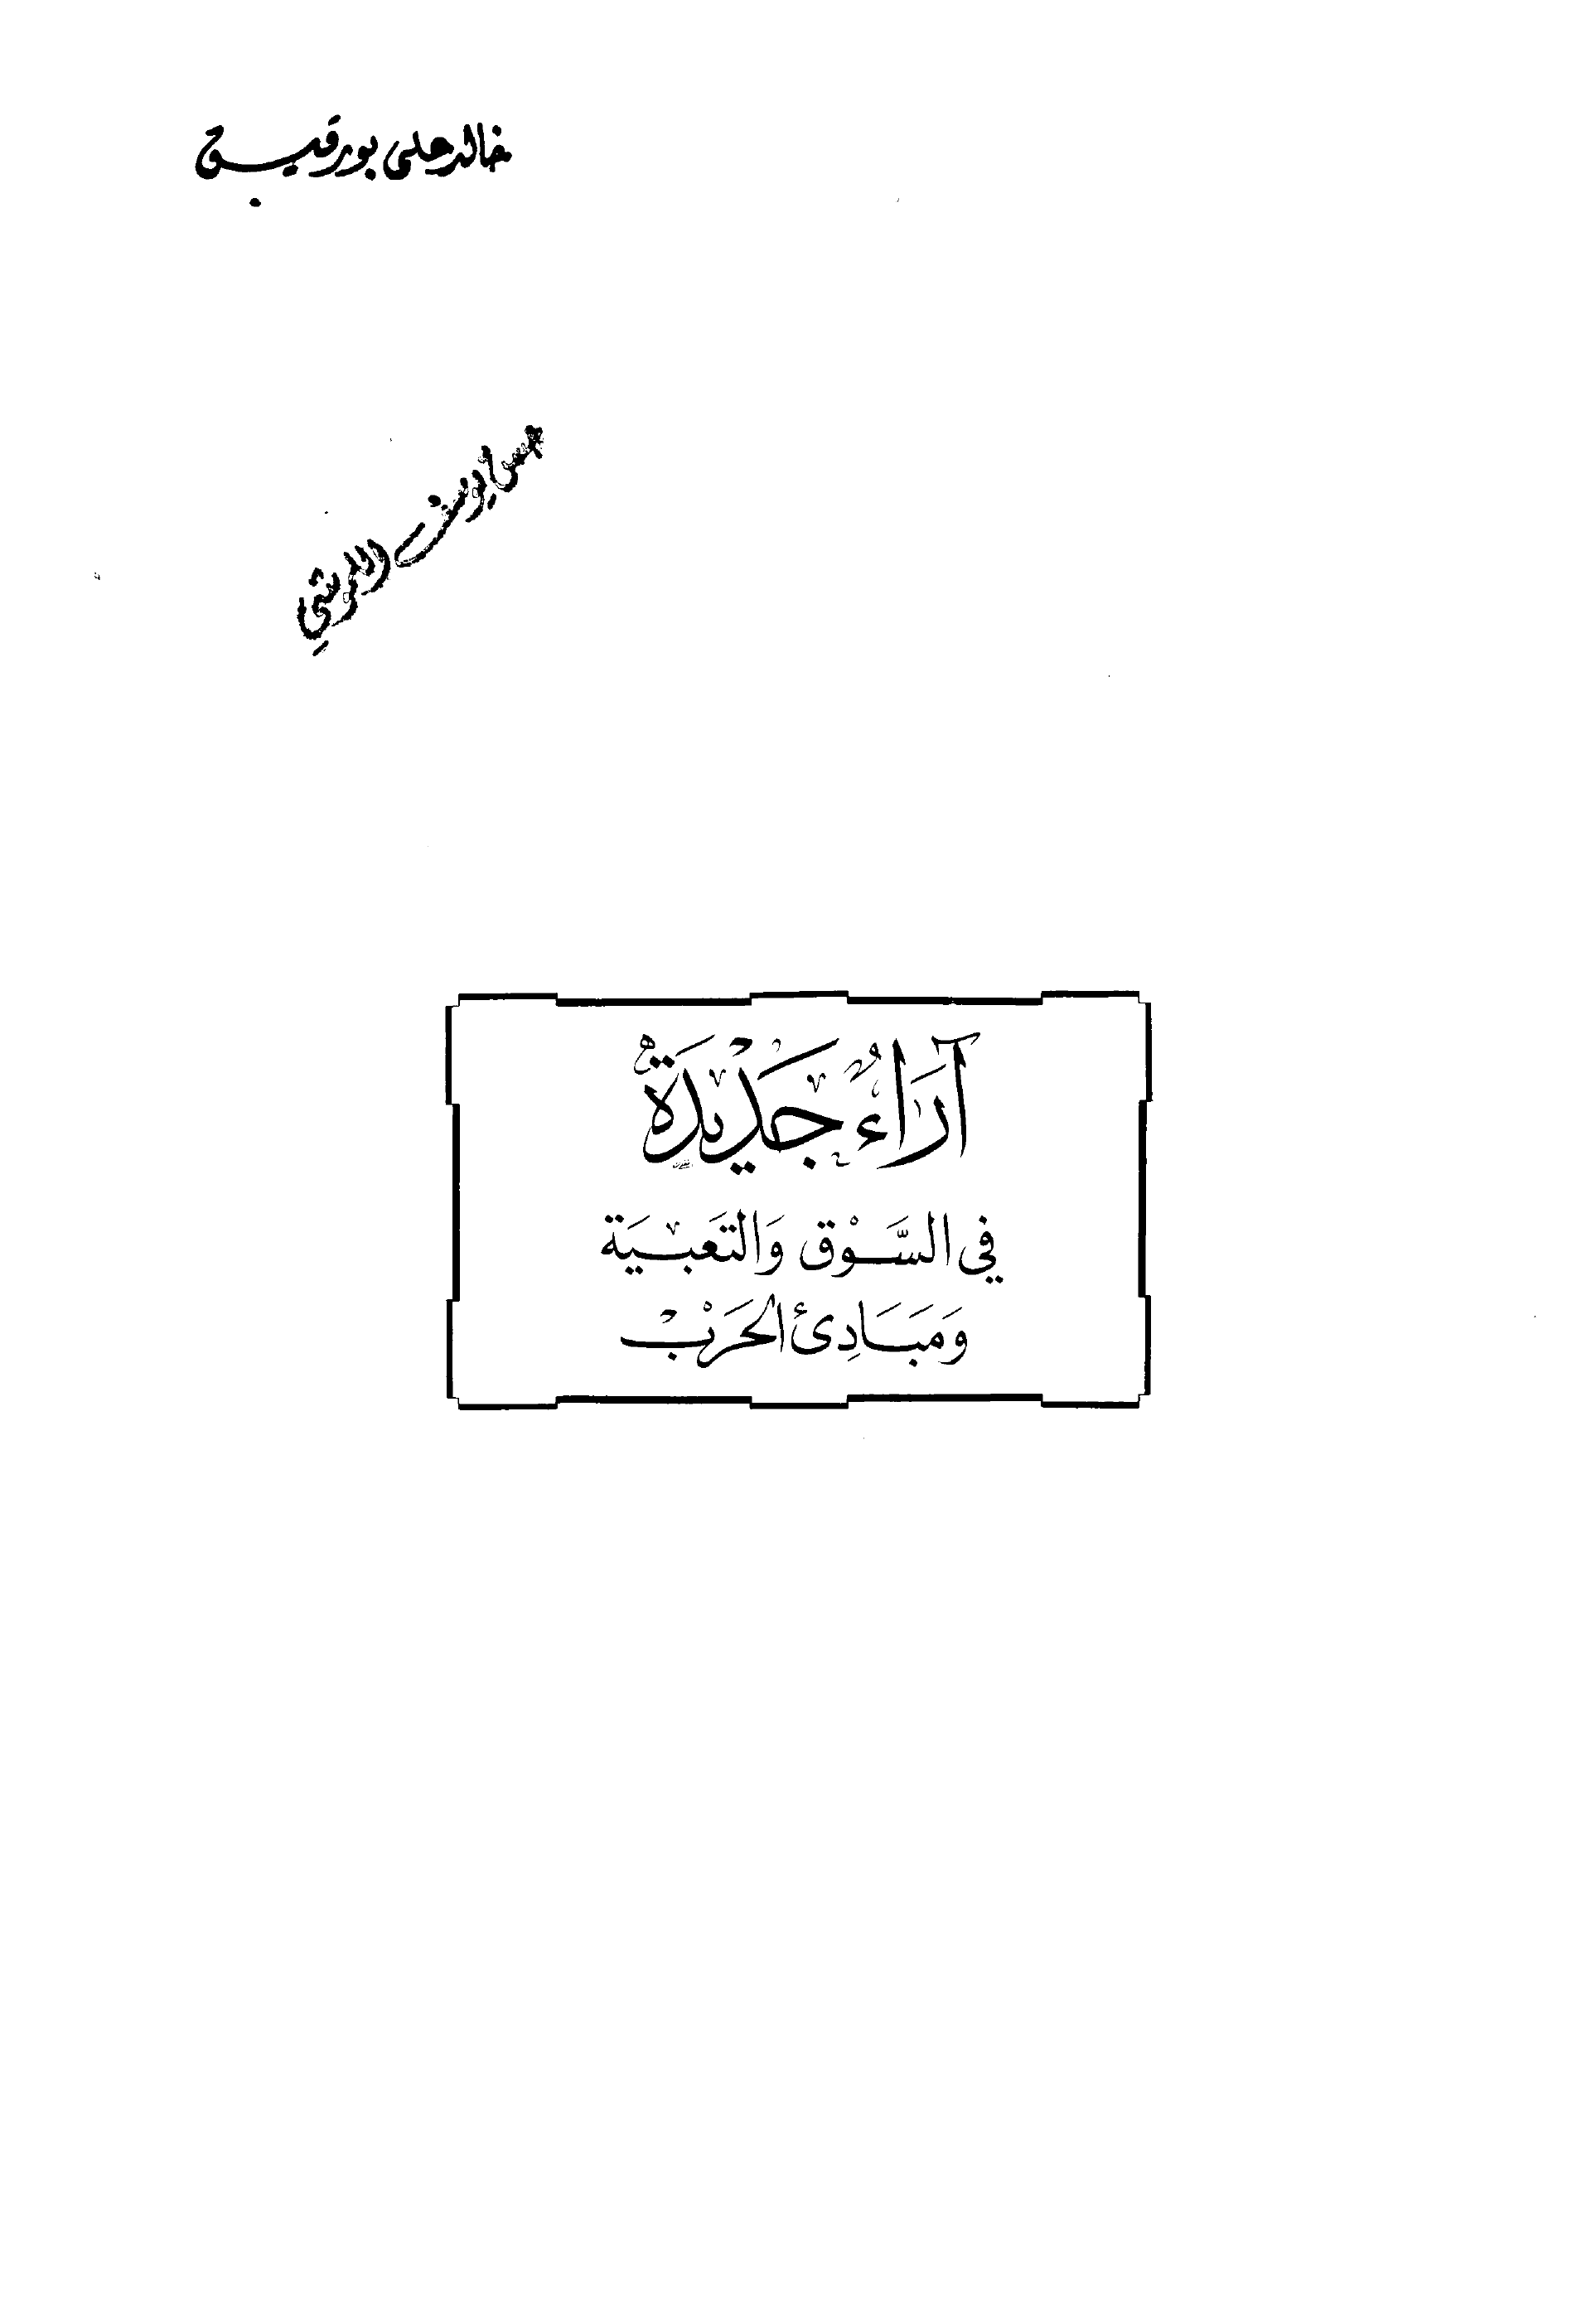 خالد علي بورقيبة
يوسف
آرَاءٌ جَدْيدَةٌ
في السَّوْق وَالتَعَبيَة
وَمَبَادِئ الحَرَبْ